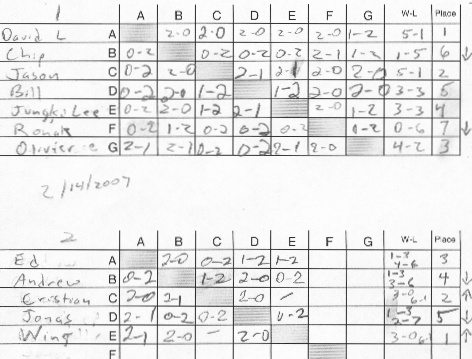 1 A B C D E F G W-L Place
David L A 2-0 2-0 2-0 2-0 2-0 1-2 5-1 1
Chip B 0-2 0-2 0-2 0-2 2-1 1-2 1-5 6 ↓
Jason C 0-2 2-0 2-1 2-1 2-0 2-0 5-1 2
Bill D 0-2 2-0 1-2 1-2 2-0 2-0 3-3 5
Jungki Lee E 0-2 2-0 1-2 2-1 2-0 1-2 3-3 4
Ronak F 0-2 1-2 0-2 0-2 0-2 0-2 0-6 7 ↓
Olivier G 2-1 2-1 0-2 0-2 2-1 2-0 4-2 3
2/14/2007
2 A B C D E F G W-L Place
Ed A 2-0 0-2 1-2 1-2 1-3 4-6 3
Andrew B 0-2 1-2 2-0 0-2 1-3 3-6 4 ↓
Cristian C 2-0 2-1 2-0 - 3-0 2 ↑
Jonas D 2-1 0-2 0-2 0-2 1-3 2-7 5 ↓
Wing E 2-1 2-0 - 2-0 3-0 1 ↑
F